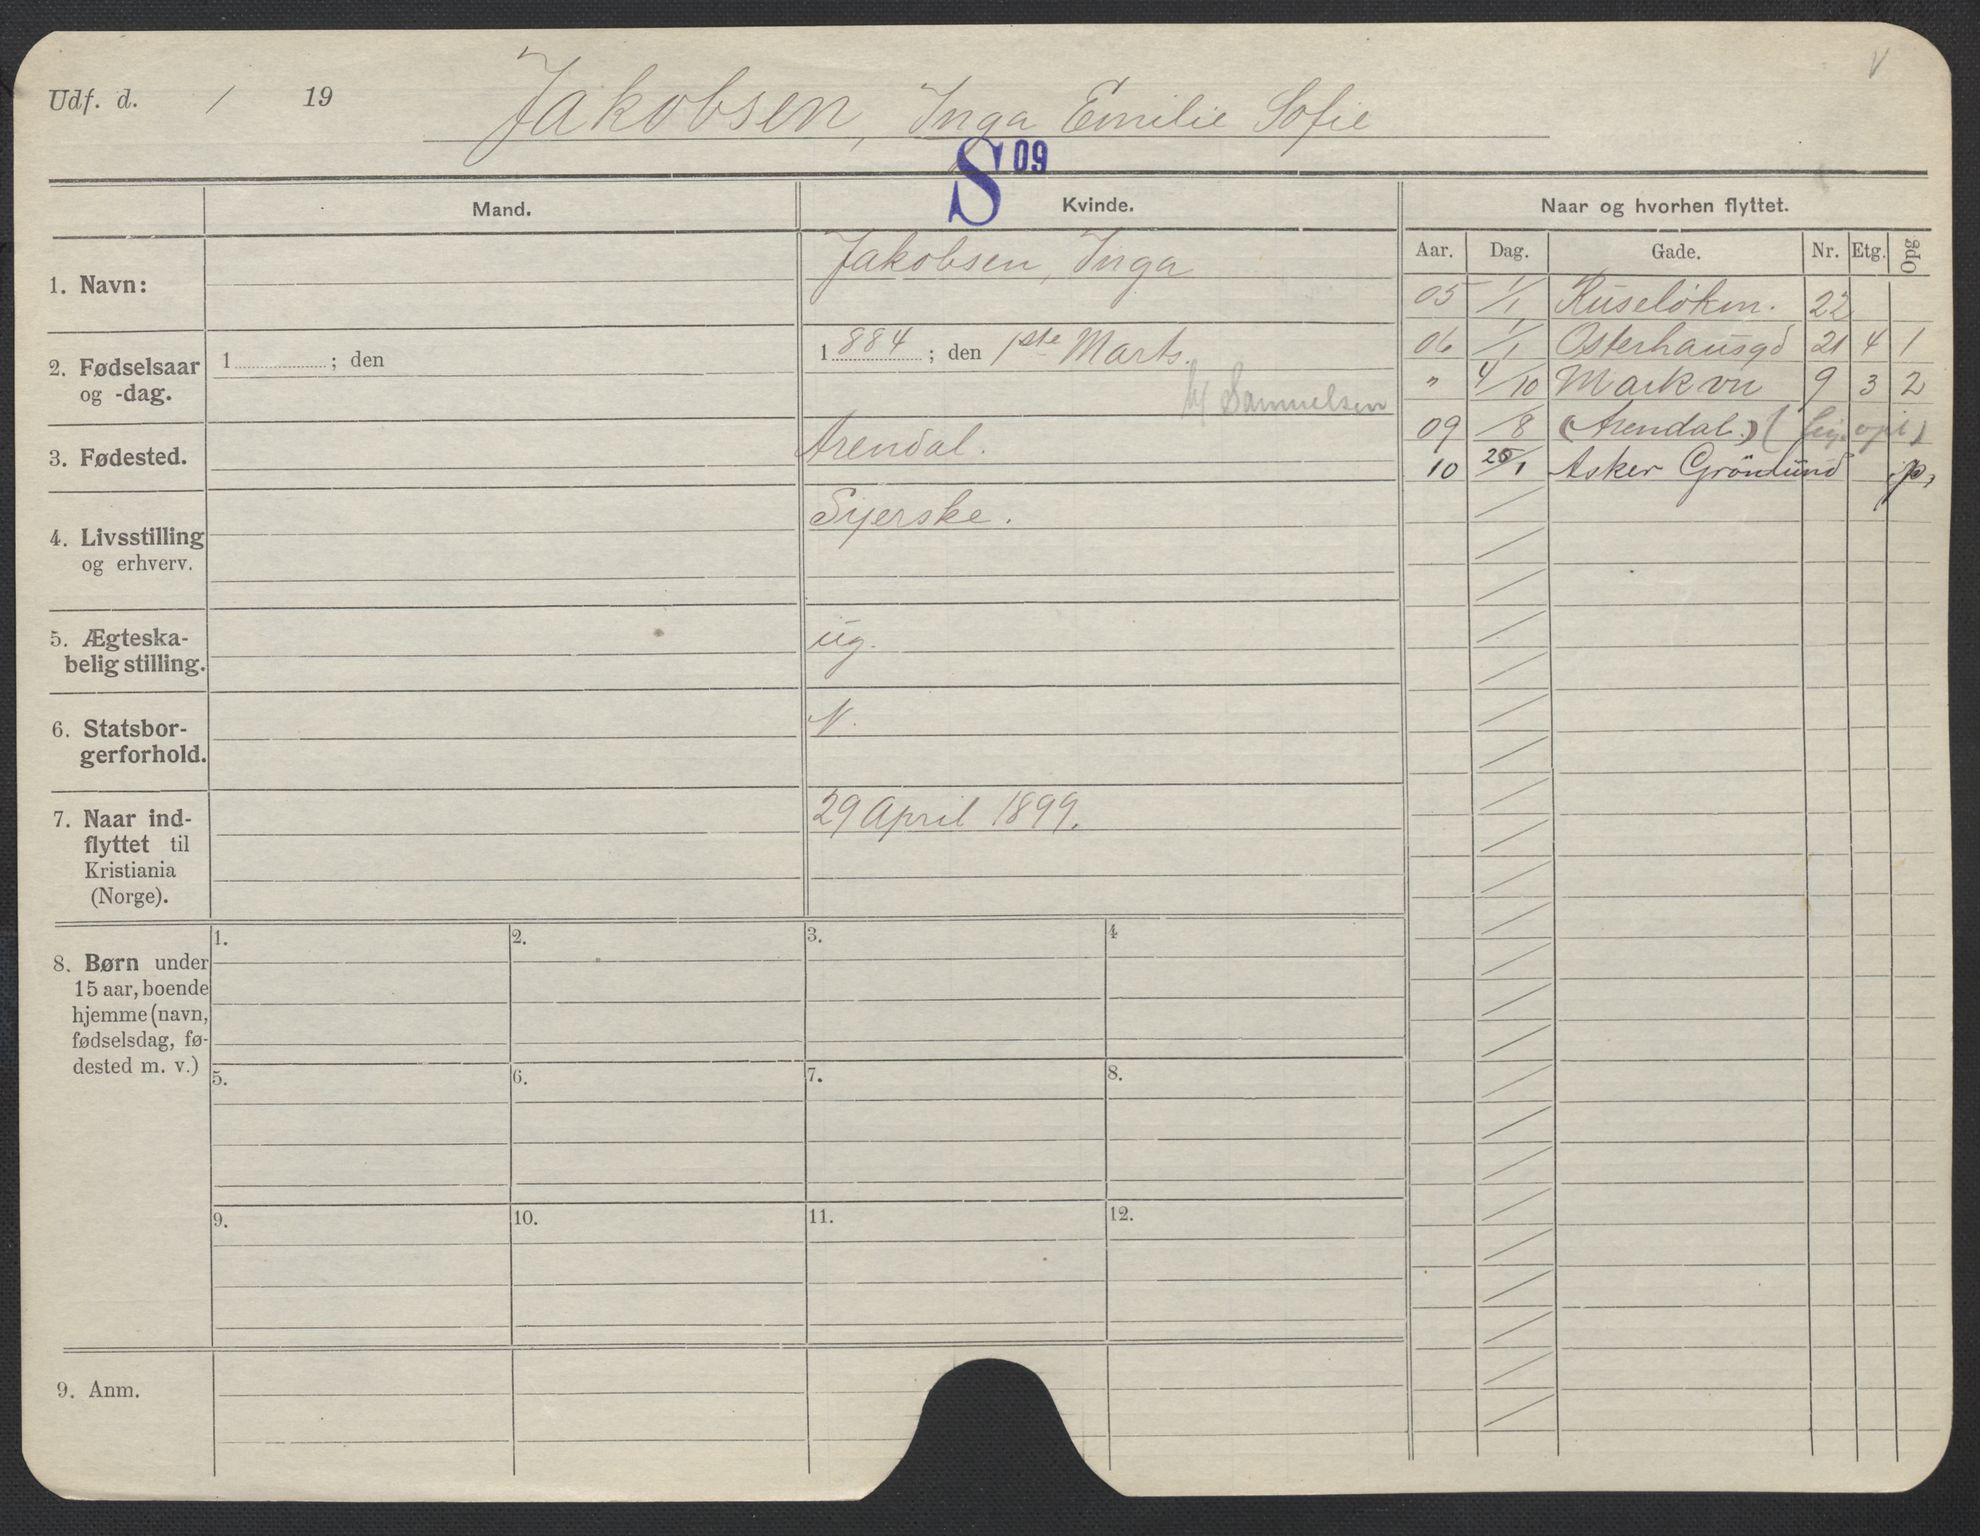 Udf. d. / 19
Jakobsen, Inga Emilie Sofie
V
S 09
Mand.
Kvinde.
Naar og hvorhen flyttet.
Aar. Dag. Gade. Nr. Etg. Opg.
1. Navn:
Jakobsen, Inga
2. Fødselsaar
og -dag.
1 ; den
1884 ; den 1ste Marts.
h/ Samuelsen
3. Fødested.
Arendal.
4. Livsstilling
og erhverv.
Syerske.
5. Ægteska-
belig stilling.
ug.
6. Statsbor-
gerforhold.
N.
7. Naar ind-
flyttet til
Kristiania
(Norge).
29 April 1899.
05 1/1 Ruseløken. 22
06 1/1 Osterhausgd 21 4 1
" 4/10 Markvn 9 3 2
09 /8 (Arendal.)
10 25/1 Asker Grönlund p.
8. Børn under
15 aar, boende
hjemme (navn,
fødselsdag, fø-
dested m. v.)
1. 2. 3. 4
5. 6. 7. 8.
9. 10. 11. 12.
9. Anm.